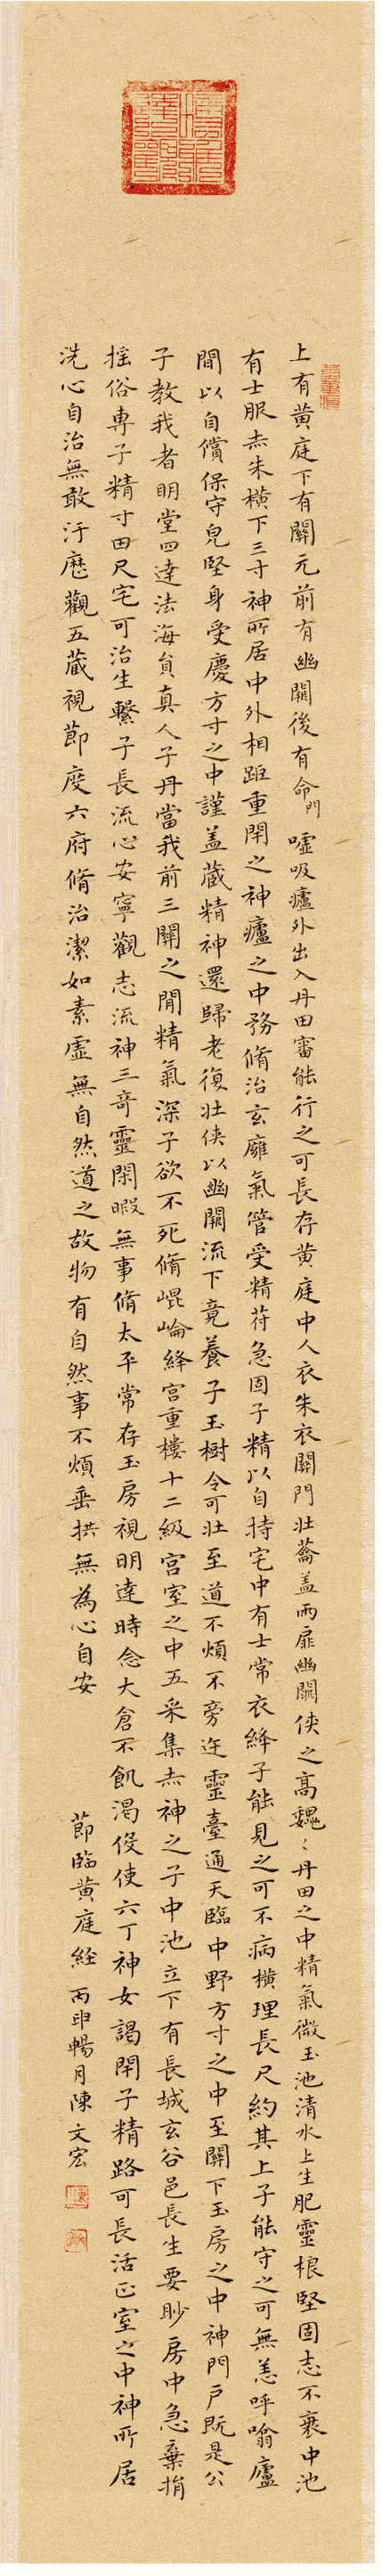 上有黄庭下有關元前有幽闕後有命門噓吸廬外出入丹田審能行之可長存黄庭中人衣朱衣關門壯蘥盖兩扉幽闕俠之髙魏〻丹田之中精氣微玉池清水上生肥靈根堅固志不衰中池
有士服赤朱橫下三寸神所居中外相距重閇之神廬之中務脩治玄癰氣管受精苻急固子精以自持宅中有士常衣絳子能見之可不病橫理長尺約其上子能守之可無恙呼噏廬
間以自償保守皃堅身受慶方寸之中謹盖藏精神還歸老復壯俠以幽闕流下竟養子玉樹令可壯至道不煩不旁迕靈臺通天臨中野方寸之中至關下玉房之中神門戶既是公
子教我者明堂四達法海負真人子丹當我前三關之間精氣深子欲不死脩崐崘絳宫重樓十二級宫室之中五采集赤神之子中池立下有長城玄谷邑長生要眇房中急棄捐
揺俗専子精寸田尺宅可治生繫子長流心安寧觀志流神三竒靈閑暇無事脩太平常存玉房視明達時念大倉不飢渴役使六丁神女謁閇子精路可長活正室之中神所居
洗心自治無敢汙歷觀五蔵視節度六府脩治潔如素虛無自然道之故物有自然事不煩垂拱無為心自安
節臨黄庭経 丙申暢月陳文宏